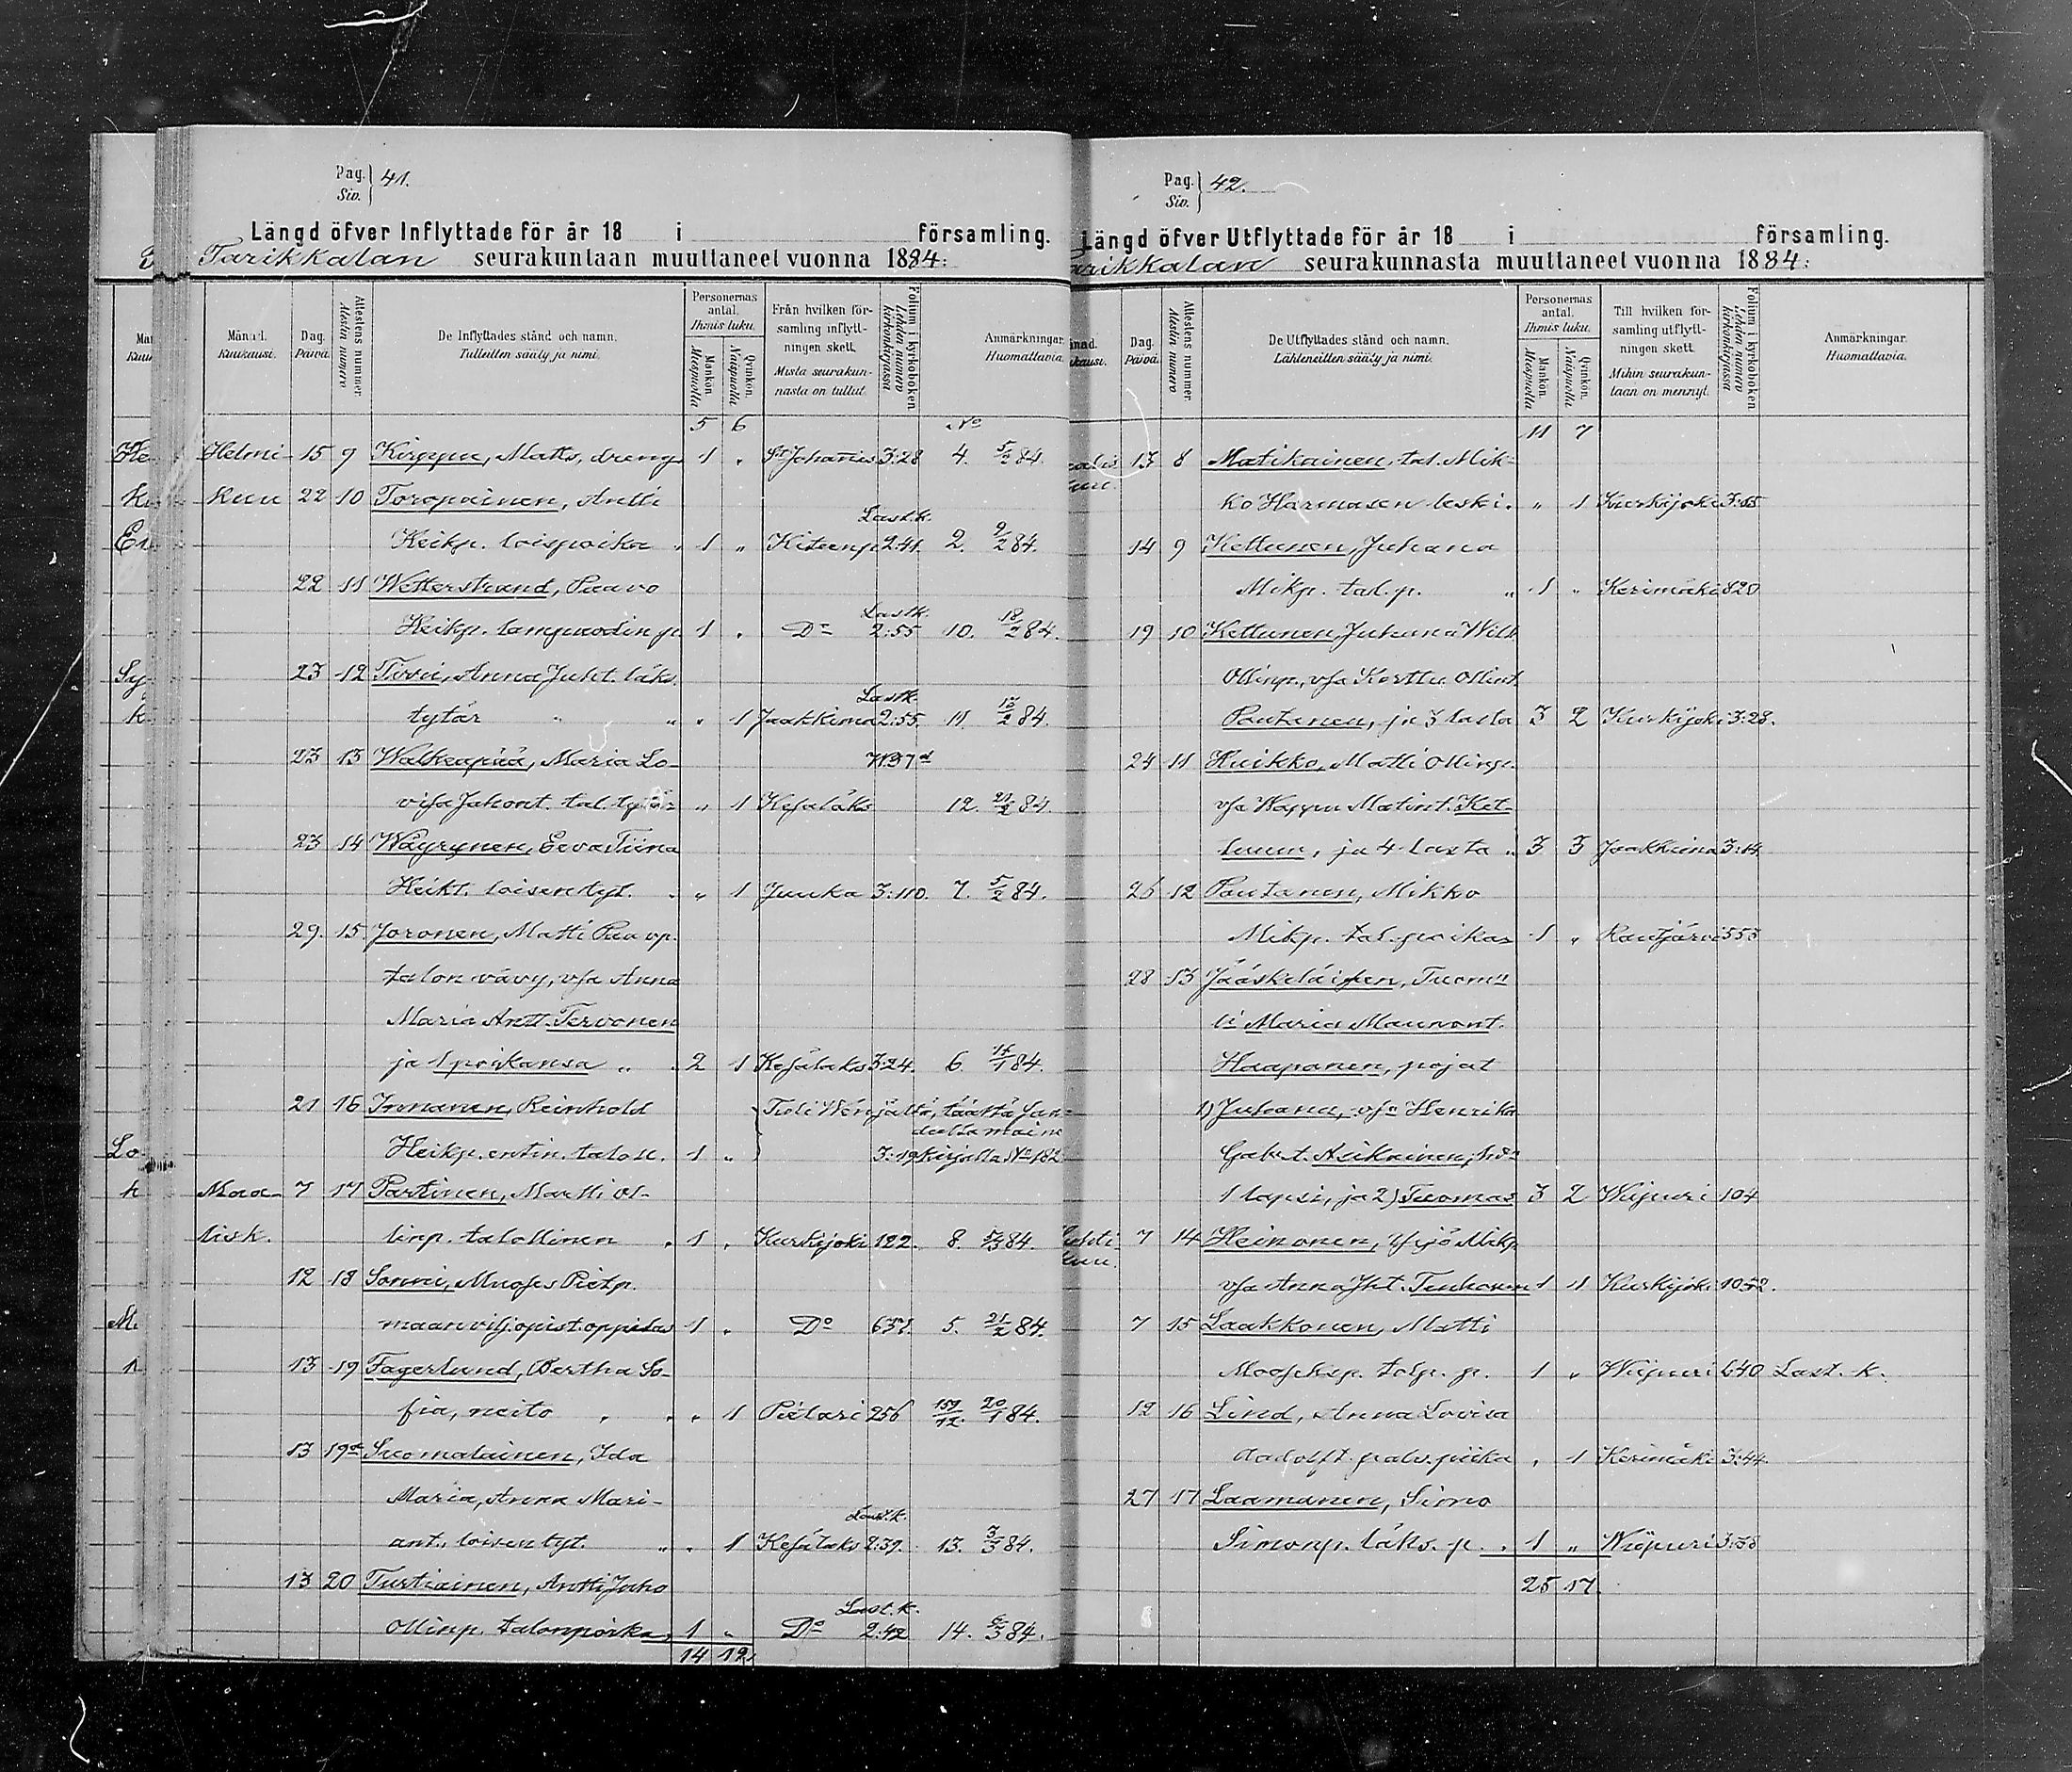 Pag. 41.
Siv.
Längd öfver Inflyttade för år 18 i församling.
Parikkalan seurakuntaan muuttaneet vuonna 1884:
Månad. Kuukausi.
Dag. Päivä.
Attestens nummer. Atestin numero
De Inflyttades stånd och namn. Tulleitten sääty ja nimi.
Personernas antal. Ihmis luku.
Mankön. Miespuolia
Qvinkön. Naispuolia
Från hvilken församling inflyttningen skett. Mistä seurakunnasta on tullut.
Folium i kyrkoboken Lehden numero kirkonkirjassa
Anmärkningar. Huomattavia.
5 6 No
Helmi- 15 9 Kirppu, Matts, dreng 1 " St Johanis 3:28 4. 5/2 84.
kuu 22 10 Toropainen, Antti
Last.k.
Heikp. loispoika " 1 " Kiteenp 2:41. 2. 9/2 84.
22 11 Wetterstrand, Paavo
Lastk.
Heikp. lampuodin p. 1 " Do 2:55 10. 18/2 84.
23 12 Tirri, Anna Juht. läks.
Lastk.
tytär " " " 1 Jaakkima 2:55. 11. 13/2 84.
23 13 Walkeapää, Maria Lo-
visa Juhont. tal. tytär " 1 Kesälaks 12. 21/2 84.
23 14 Wäyrynen, Eeva Tiina
Heikt. loisentyt. " 1 Juuka 3:110. 7. 5/2 84.
29. 15. Joronen, Matti Paavp.
talon vävy, vsa Anna
Maria Antt. Tervonen
ja 1 poikansa " 2 1 Kesälaks 3:24. 6. 84.
21 16 Innanen, Reinhold
Heikp. entin. talon. 1 " 3:19 kirjalla No 182
Maa- 7 17 Partinen, Matti Ol-
lisk. linp. talollinen " 1 " Kurkijoki 122. 8. 84.
12 18 Sorvi, Mooses Pietp.
maanviljopist. oppilas 1 " Do 631. 5. 21/2 84.
13 19 Fagerlund, Bertha So-
fia, neito " " " 1 Pietari 256 159/12. 20/1 84.
13 19a Suomalainen, Ida
Maria, Anna Mari-
Last.k.
ant. loisentyt. " " 1 Kesälaks 2:39. 13. 3/3 84.
13 20 Turtiainen, Antti Juho
Last.k.
Ollinp. talonpoika 1 " Do 2:42 14. 6/3 84.
14 12
Pag. 42.
Siv.
Längd öfver Utflyttade för år 18 i församling.
arikkalan seurakunnasta muuttaneet vuonna 1884:
Dag. Päivä.
Attestens nummer. Atestin numero
De Utflyttades stånd och namn. Lähteneitten sääty ja nimi.
Personernas antal. Ihmis luku.
Mankön. Miespuolia
Qvinkön. Naispuolia
Till hvilken församling utflyttningen skett. Mihin seurakuntaan on mennyt.
Folium i kyrkoboken Lehden numero kirkonkirjassa
Anmärkningar. Huomattavia.
11 7
13 8 Matikainen, tal. Mik-
ko Harmasen leski. " 1 Kurkijoki
14 9 Kettunen, Juhana
Mikp. tal. p. " 1 " Kerimäki 820
19 10 Kettunen, Juhana Wilh
Ollinp., vsa Kerttu Ollint.
Pautanen, ja 3 lasta 3 2 Kurkijoki 3:28.
24 11 Kuikko, Matti Ollinp.
vsa Wappu Matint. Ket-
tunen, ja 4 lasta " 3 3 Jaakkima 3:14.
26 12 Pautanen, Mikko
Mikp. tal. poika 1 " Rautjärvi 555
28 13 Jääskeläisen, Tuomn
li Maria Maunont.
Haapanen, pojat
1) Juhana, vsa Henrika
Gabr.t. Asikainen,
1 lapsi, ja 2) Tuomas 3 2 Wiipuri 104
7 14 Heinonen, Yrjö Mikp.
vsa Anna Jht. Tuhonen 1 1 Kurkijoki 1052.
7 15 Laakkonen, Matti
Mooseksp. talp. p. 1 " Wiipuri 640 Last. k.
12 16 Lind, Anna Lovisa
Aadolft. palv. piika " 1 Kerimäki 3:44.
27 17 Laamanen, Simo
Simonp. läks. p. " 1 " Wiipuri 3:58
25 17.